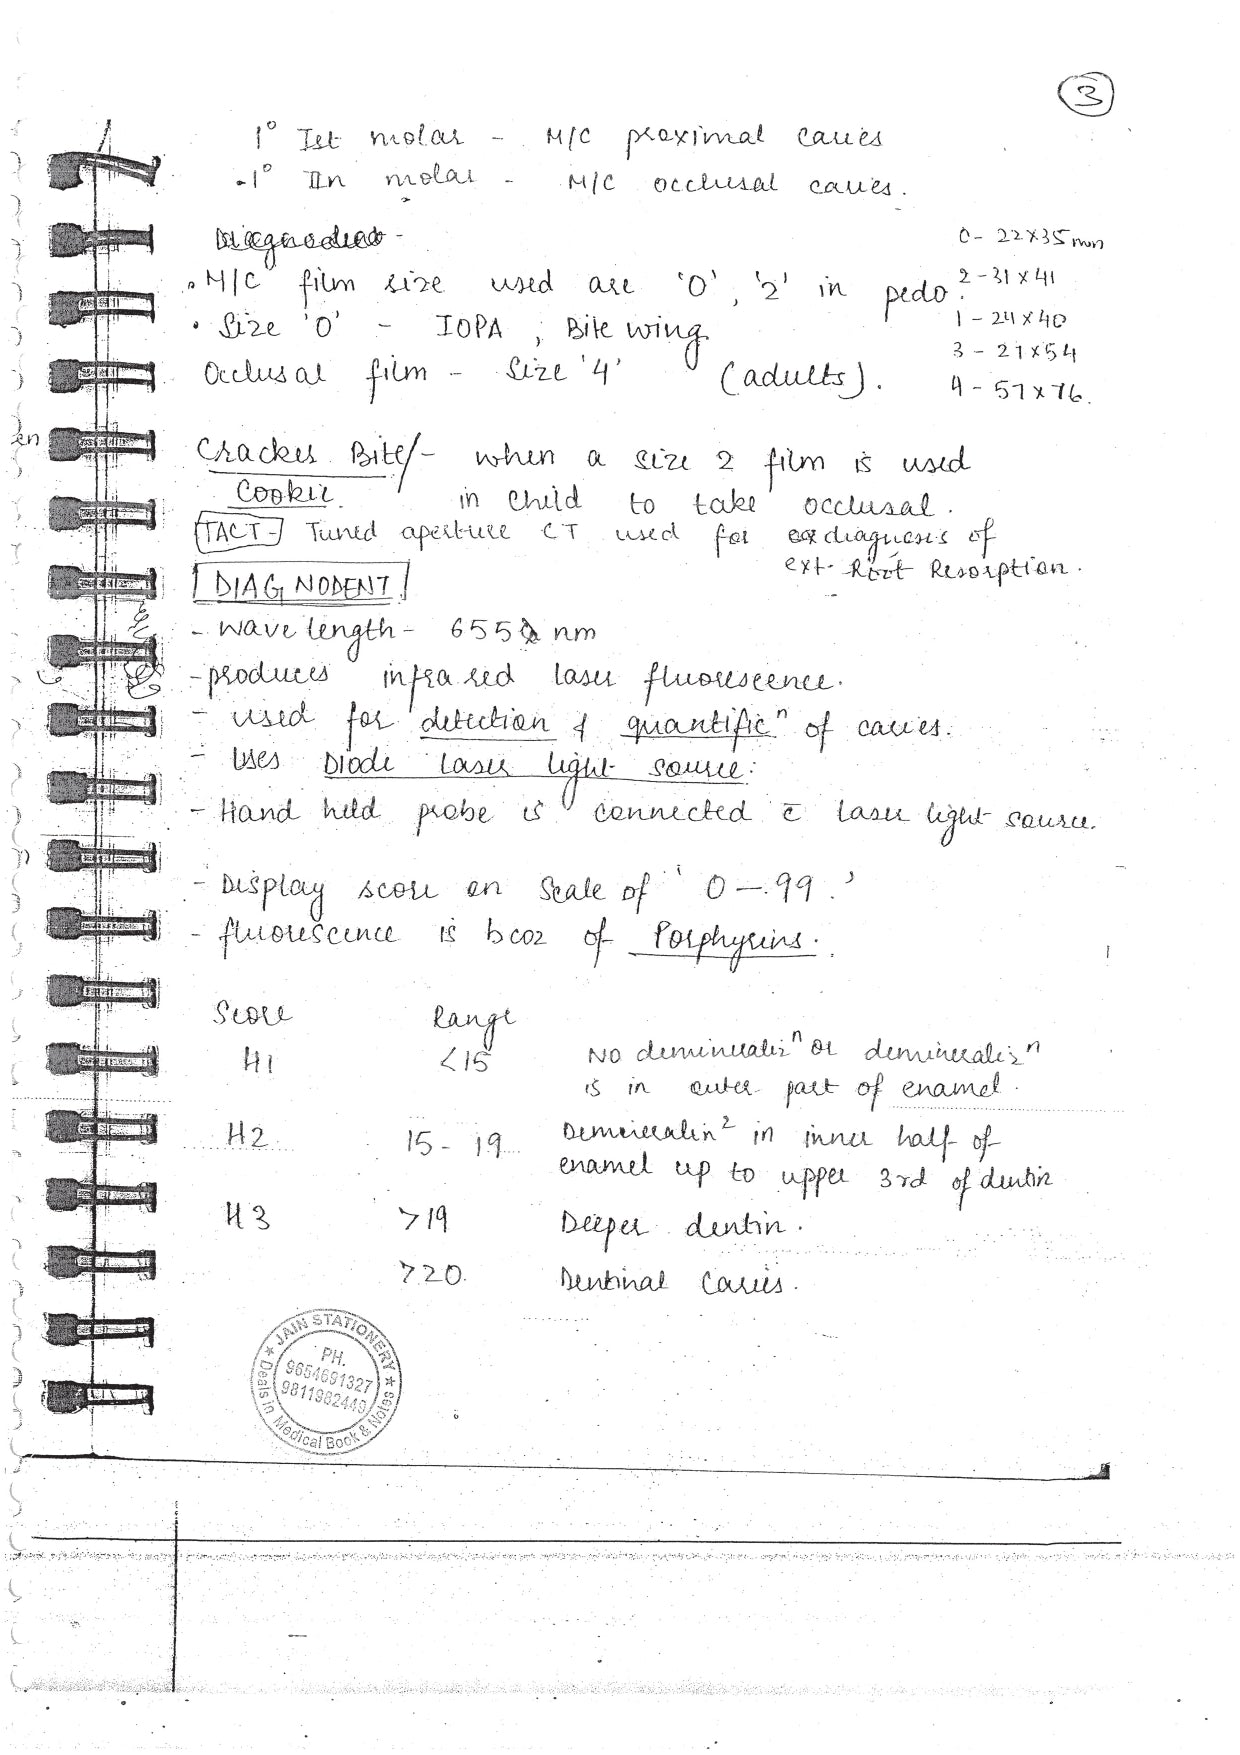 3
1° Ist molar - M/C proximal caries
1° IIn molar - M/C occlusal caries.
0 - 22x35 mm
M/C film size used are '0', '2' in pedo.
2 - 31 x 41
1 - 24 x 40
Size '0' - IOPA, Bite wing
3 - 27x54
Occlusal film - Size '4' (adults).
4 - 57 x 76.
en
Cracker Bite/- when a size 2 film is used
Cookie in child to take occlusal.
TACT - Tuned aperture CT used for diagnosis of
ext. Root Resorption.
DIAGNODENT
- Wave length - 655 nm
- produces infra red laser fluorescence.
- used for detection & quantificⁿ of caries.
- Uses Diode laser light source.
- Hand held probe is connected c̄ laser light source.
- Display score on Scale of '0 - 99.'
- fluorescence is bcoz of Porphyrins.
Score Range
H1 <15 No demineralizⁿ or demineralizⁿ
is in outer part of enamel.
H2 15 - 19 in inner half of
enamel up to upper 3rd of dentin
H3 >19 Deeper dentin.
>20 Dentinal Caries.
★ JAIN STATIONERY ★
PH.
9654691327
9811982440
Deals in Medical Book & Notes